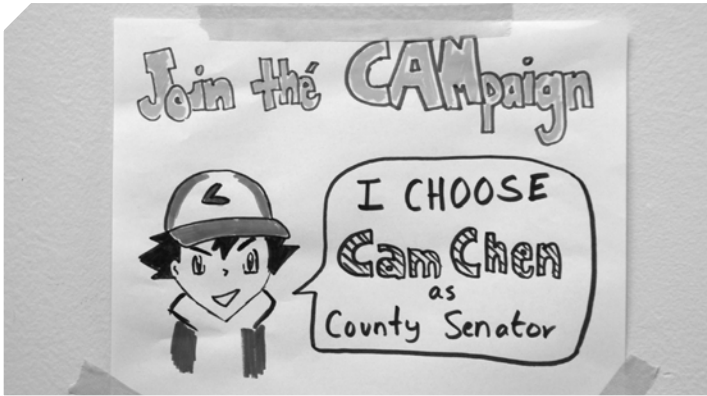 Join thé CAMpaign
I CHOOSE
Cam Chen
as
County Senator